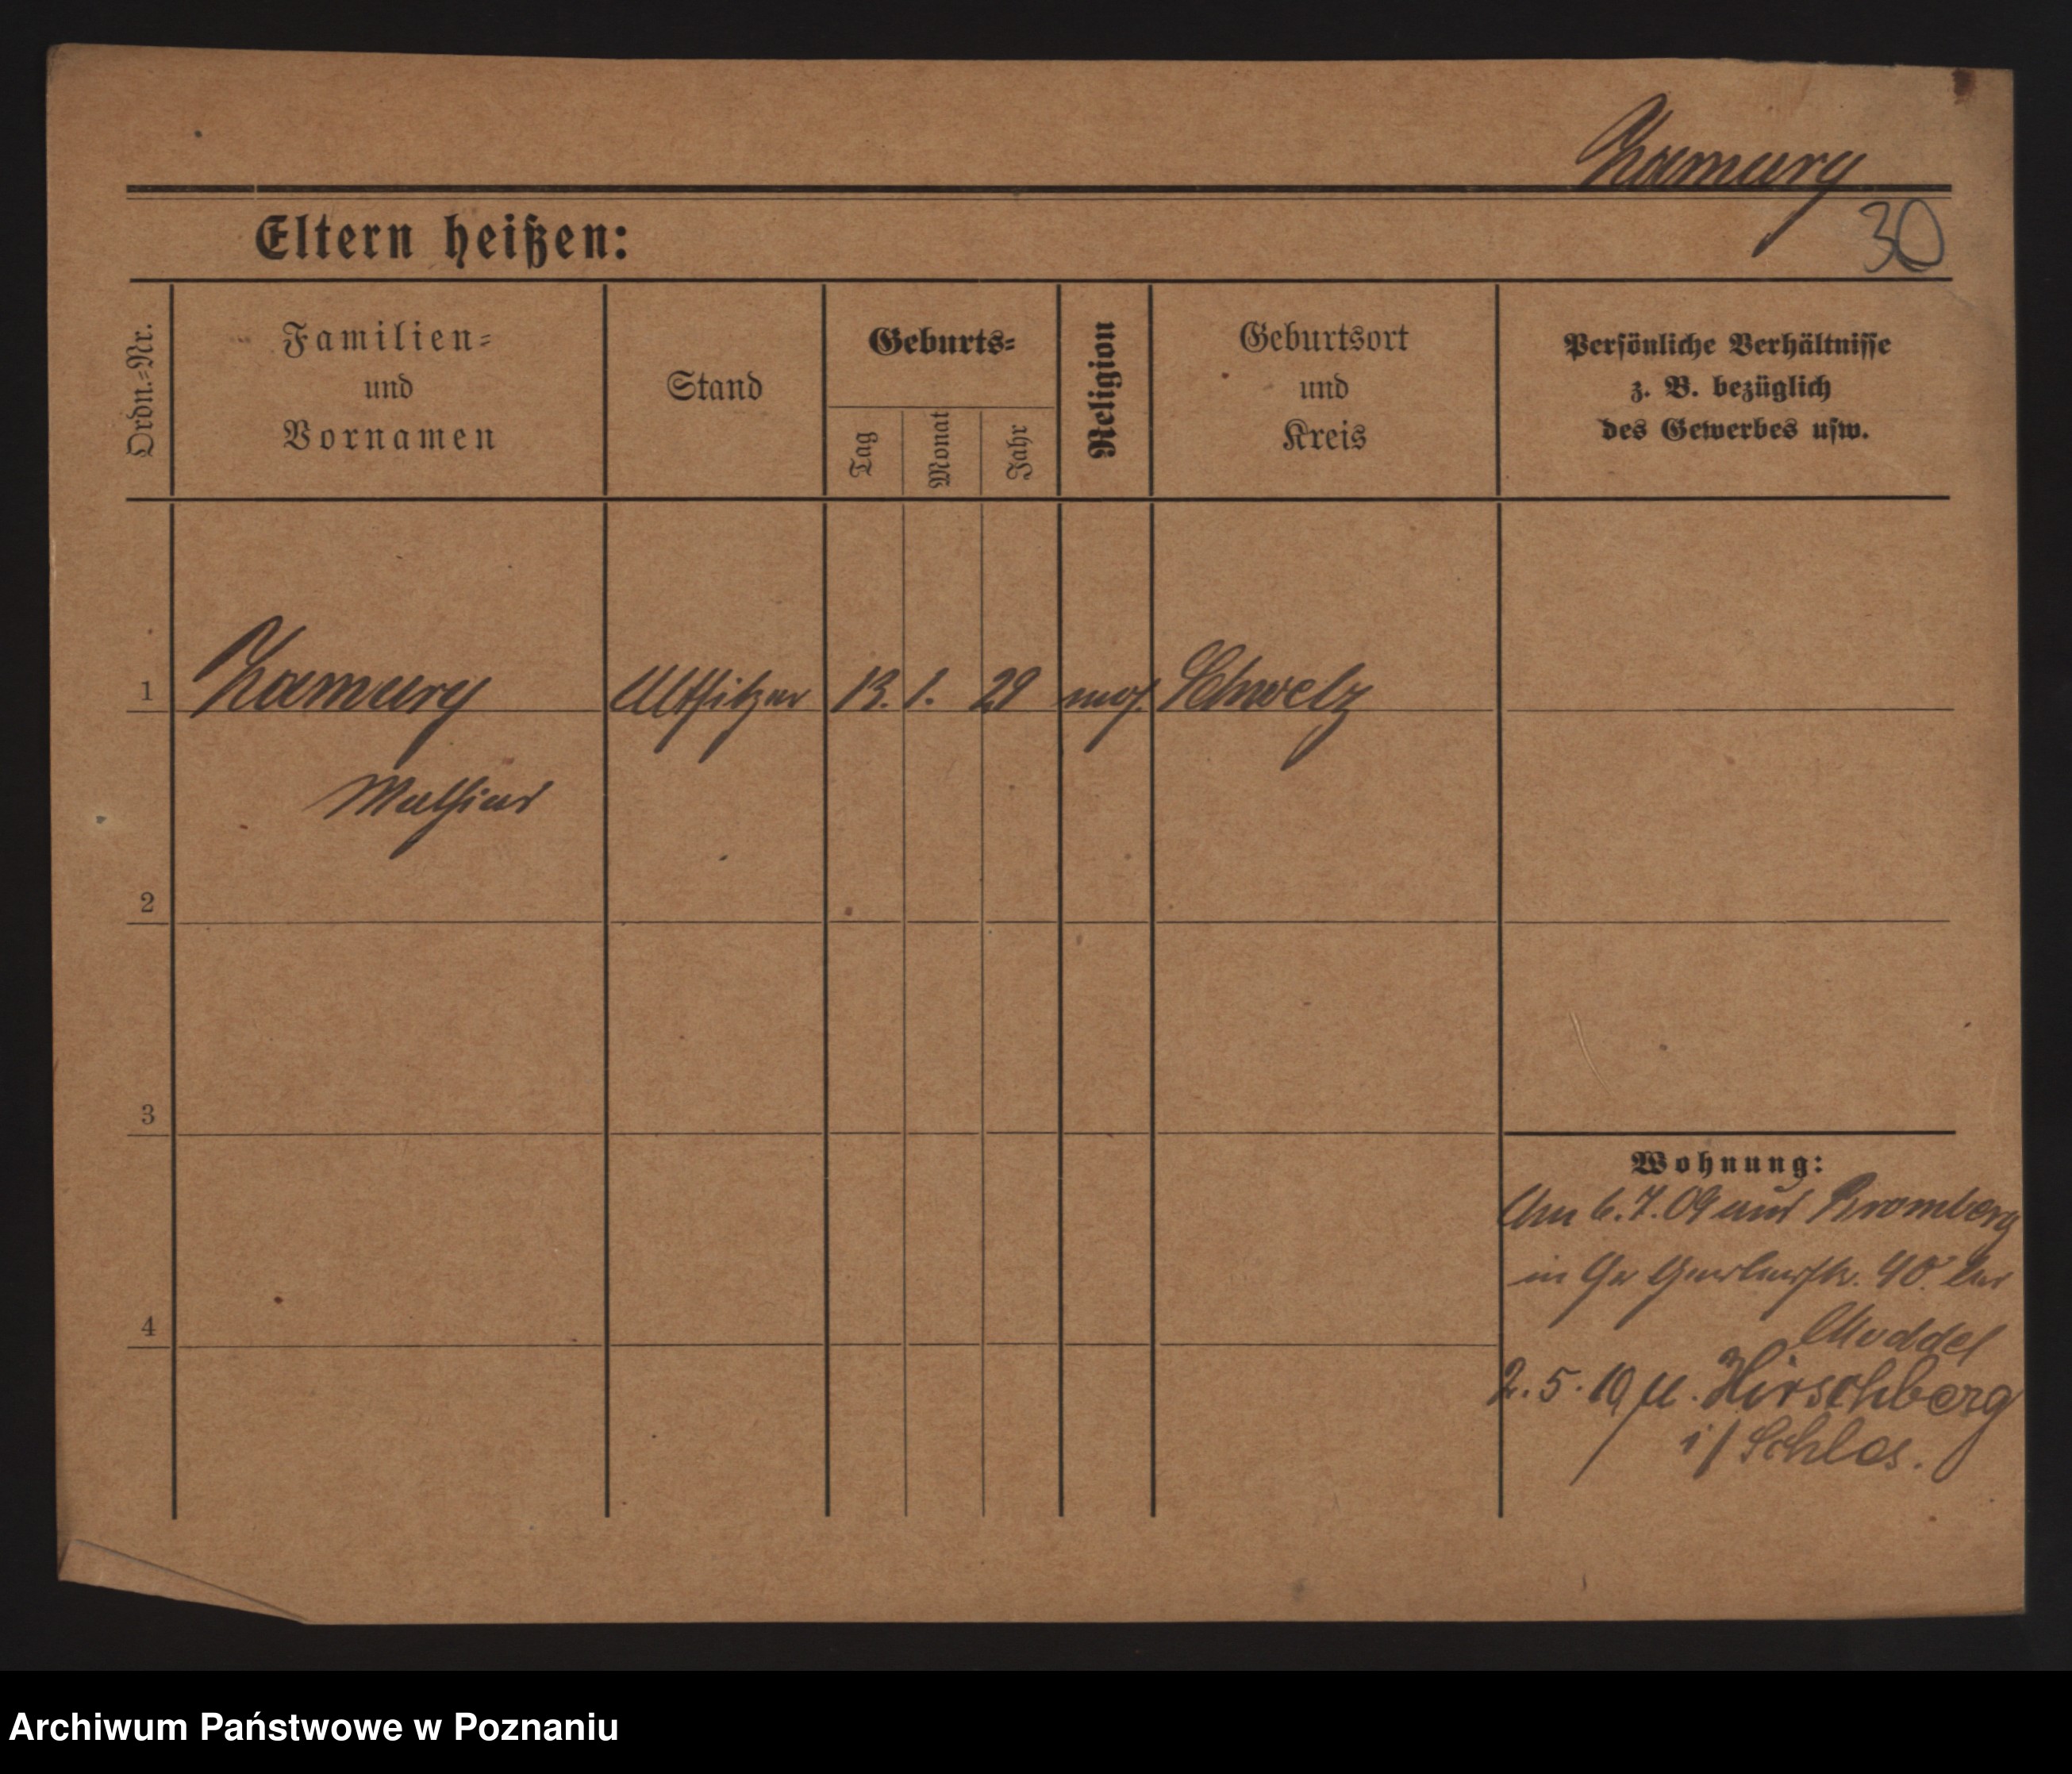 Zamury
30
Eltern heißen:
Ordn.=Nr.
Familien=
und
Vornamen
Stand
Geburts=
Tag
Monat
Jahr
Religion
Geburtsort
und
Kreis
Persönliche Verhältnisse
z. B. bezüglich
des Gewerbes usw.
1
Zamury Altsitzer 13. 1. 29 mos. Schwetz
Mathias
2
3
Wohnung:
Am 6.7.09 aus Bromberg
in Gr 40. bei
4
2.5.10 u. Hirschberg
i/ Schles.
Archiwum Państwowe w Poznaniu